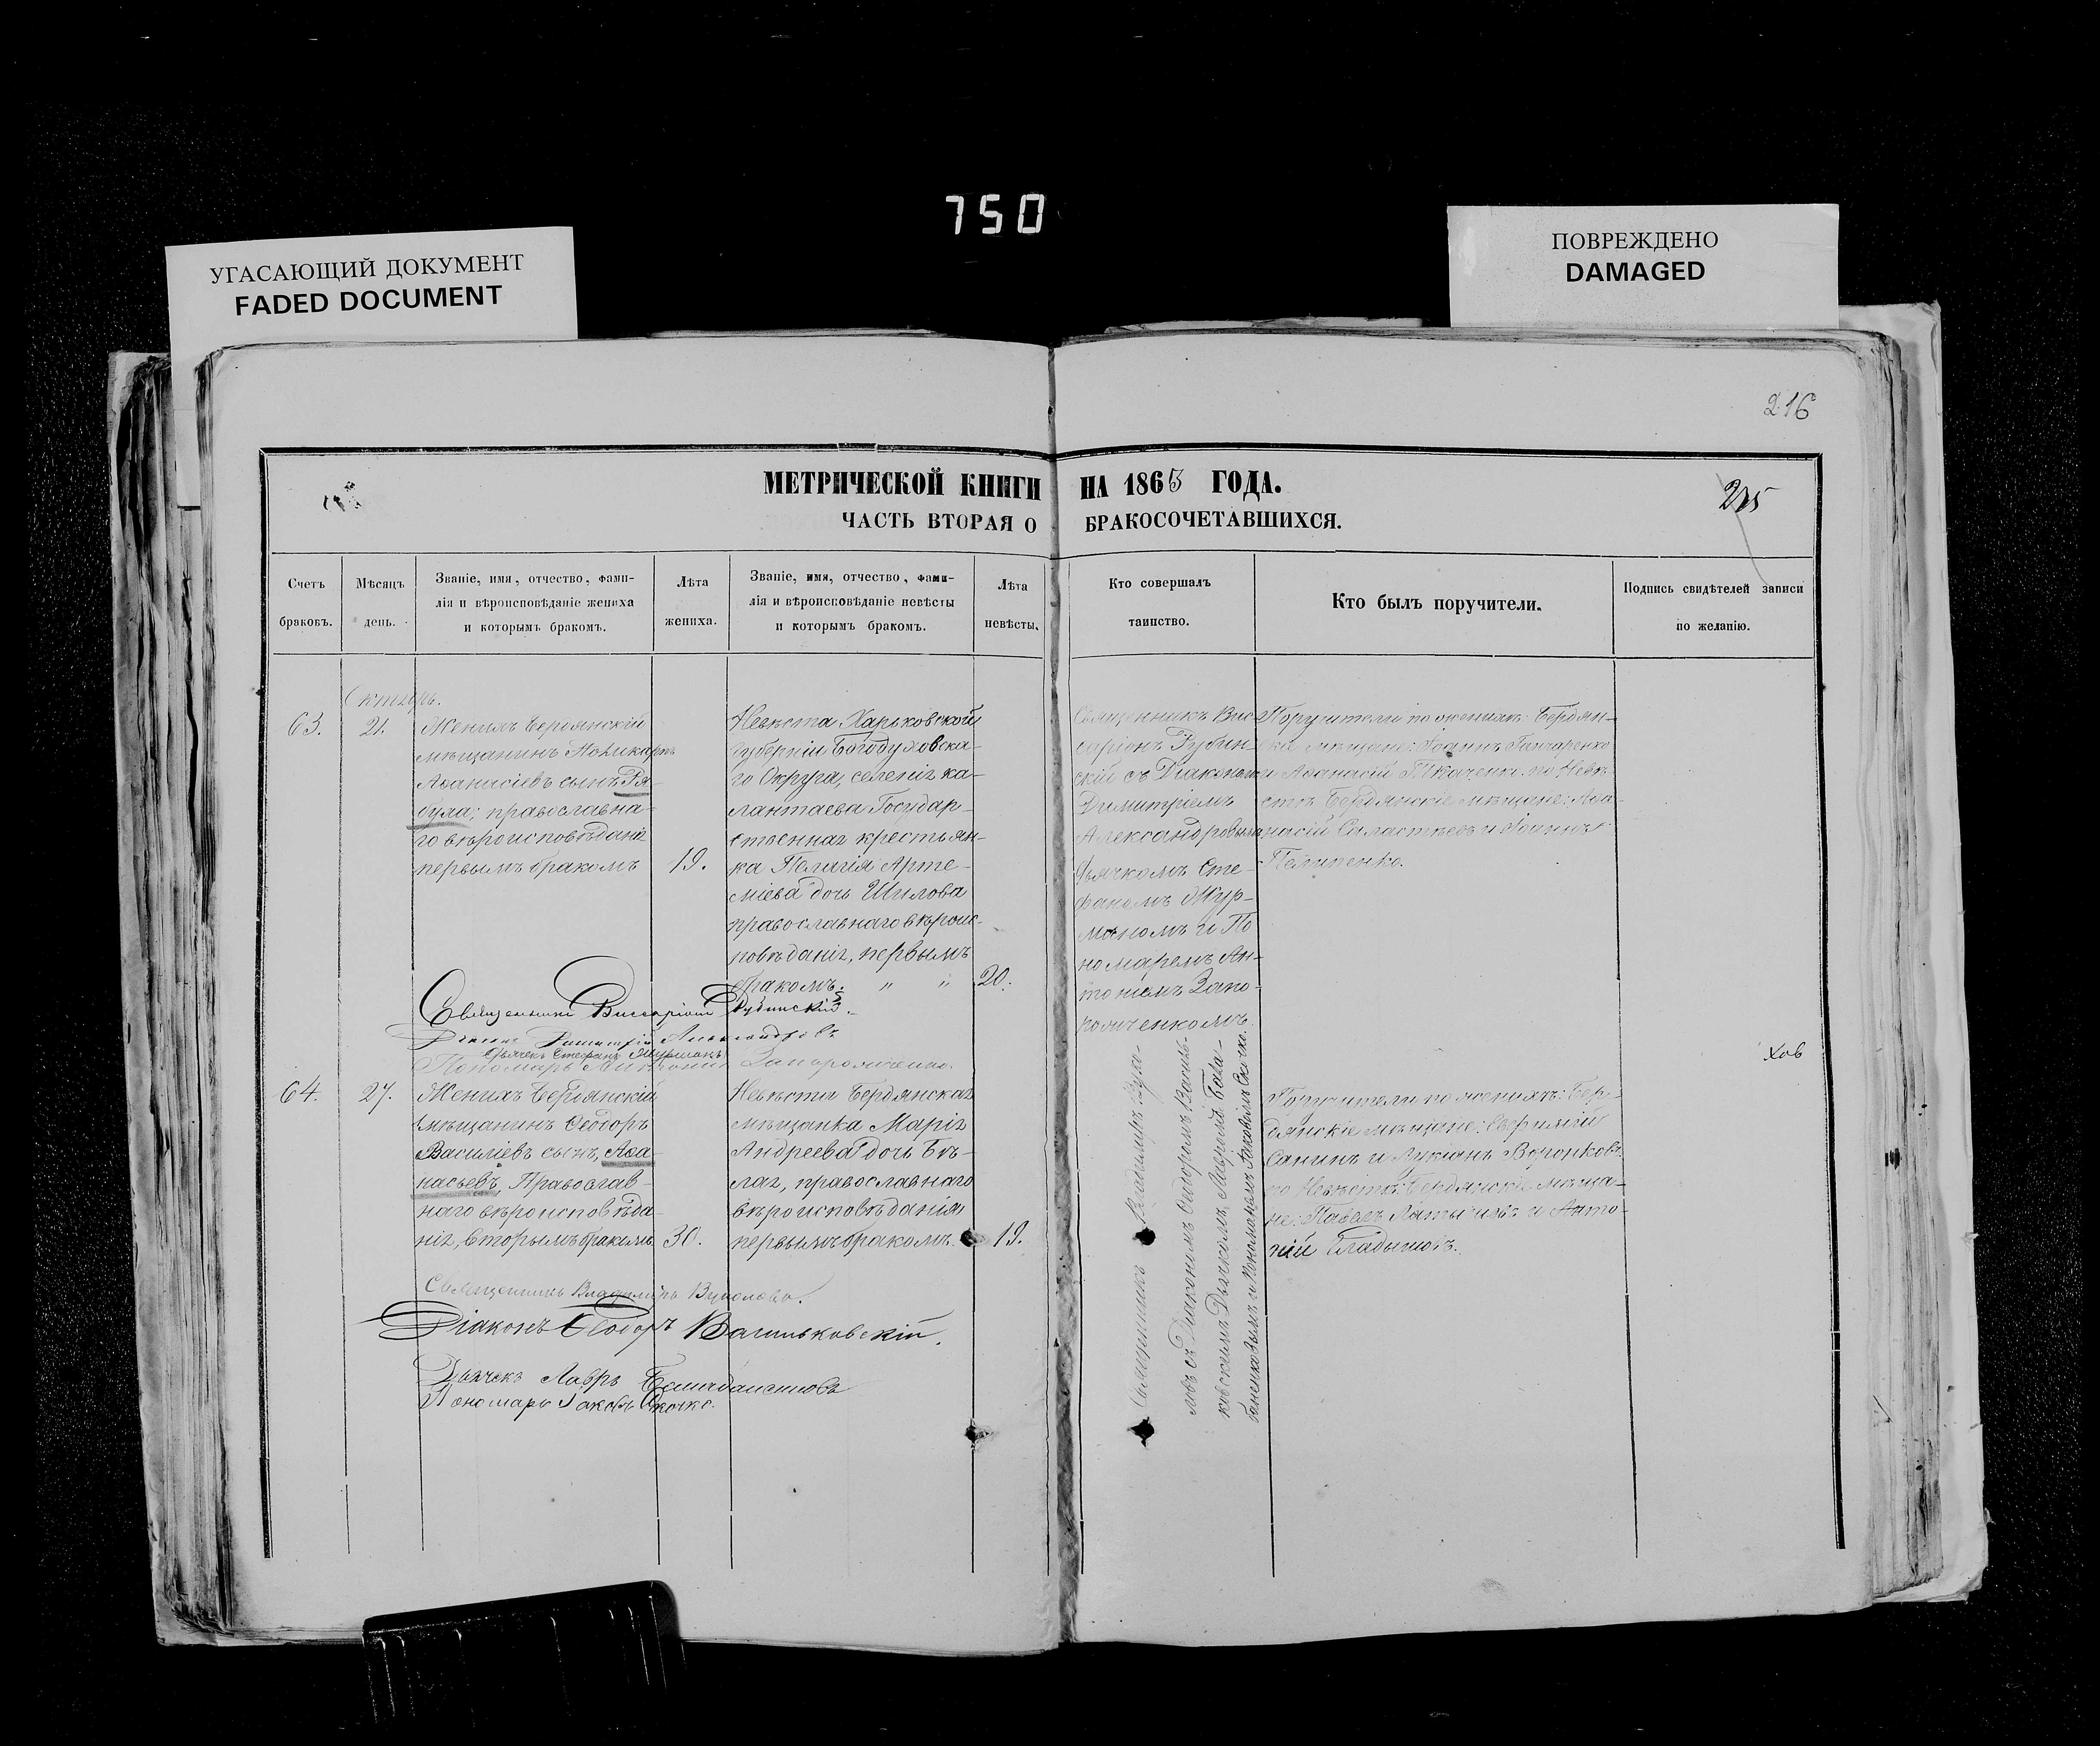 750
УГАСАЮЩИЙ ДОКУМЕНТ
FADED DOCUMENT
ПОВРЕЖДЕНО
DAMAGED
216
МЕТРИЧЕСКОЙ КНИГИ НА 1863 ГОДА.
215
ЧАСТЬ ВТОРАЯ О БРАКОСОЧЕТАВШИХСЯ.
Счетъ
браковъ.
Мѣсяцъ
день.
Званіе, имя, отчество, фами-
лія и вѣроисповѣданіе жениха
и которымъ бракомъ.
Лѣта
жениха.
Званіе, имя, отчество, фами-
лія и вѣроисповѣданіе невѣсты
и которымъ бракомъ.
Лѣта
невѣсты.
Кто совершалъ
таинство.
Кто былъ поручители.
Подпись свидѣтелей записи
по желанію.
Октябрь.
63.
21.
Женихъ Бердянскій
мѣщанинъ Поликарпъ
Аѳанасіевъ сынъ Ря-
була; православна-
го вѣроисповѣданія
первымъ бракомъ
19.
Невѣста Харьковской
губерніи Богодуховска-
го Округа, селенія Ка-
лантаева Государ-
ственная крестьян-
ка Пелагія Арте-
міева дочь Шилова
православнаго вѣроис-
повѣданія, первымъ
бракомъ. " "
20.
Священникъ Вис-
саріонъ Рубин-
скій съ Діакономъ
Димитріемъ
Александровымъ
Дьячкомъ Сте-
фаномъ Жур-
маномъ и По
номаремъ Ан-
тоніемъ Запо-
рожченкомъ.
Поручители по женихѣ: Бердян-
скіе мѣщане: Іоаннъ Гончаренко
и Аѳанасій Ткаченко. по Невѣ-
стѣ Бердянскіе мѣщане: Аѳа-
насій и Іоаннъ
Пелипенко.
Священникъ Виссаріонъ Рубинскій.
Діаконъ Димитрій Александровъ
Дьячекъ Стефанъ Журманъ
Пономарь Антоній Запорожченко.
64.
27.
Женихъ Бердянскій
мѣщанинъ Ѳеодоръ
Василіевъ сынъ, Аѳа-
насьевъ, Православ-
наго вѣроисповѣда-
нія, вторымъ бракомъ
30.
Невѣста Бердянская
мѣщанка Марія
Андреева дочь Бѣ-
лая, православнаго
вѣроисповѣданія
первымъ бракомъ.
19.
Священникъ Владиміръ Вуко-
ловъ съ Діакономъ Ѳеодоромъ Василь-
ковскимъ Дьячкомъ Лавромъ
и Пономаремъ Іаковомъ Скочко.
Поручители по женихѣ: Бер-
дянскіе мѣщане: Евфимій
Санинъ и Лукіанъ Воронковъ
хов
по Невѣстѣ: Бердянскіе мѣща-
не: Павелъ Латышовъ и Анто-
ній Гладышовъ.
Священникъ Владиміръ Вуколовъ.
Діаконъ Ѳеодоръ Васильковскій.
Дьячекъ Лавръ
Пономарь Іаковъ Скочко.